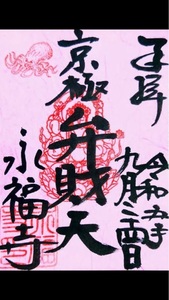 奉拝
令和五年
九月二四日
京極
弁財天
永福寺